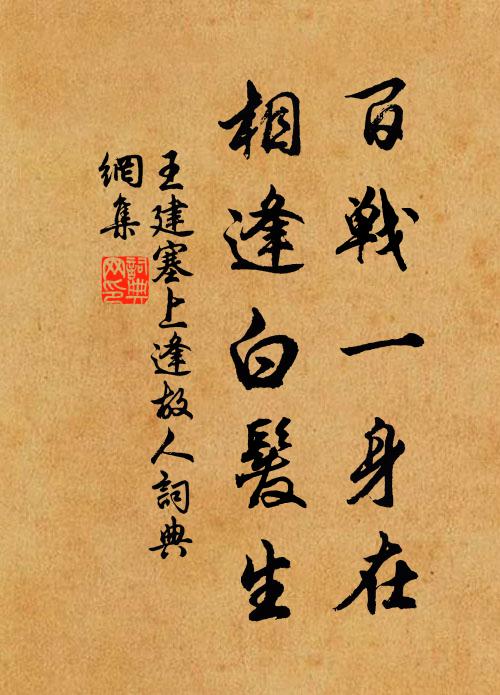 百戰一身在
相逢白髮生
王建塞上逢故人詞典
網集
詞典
网印